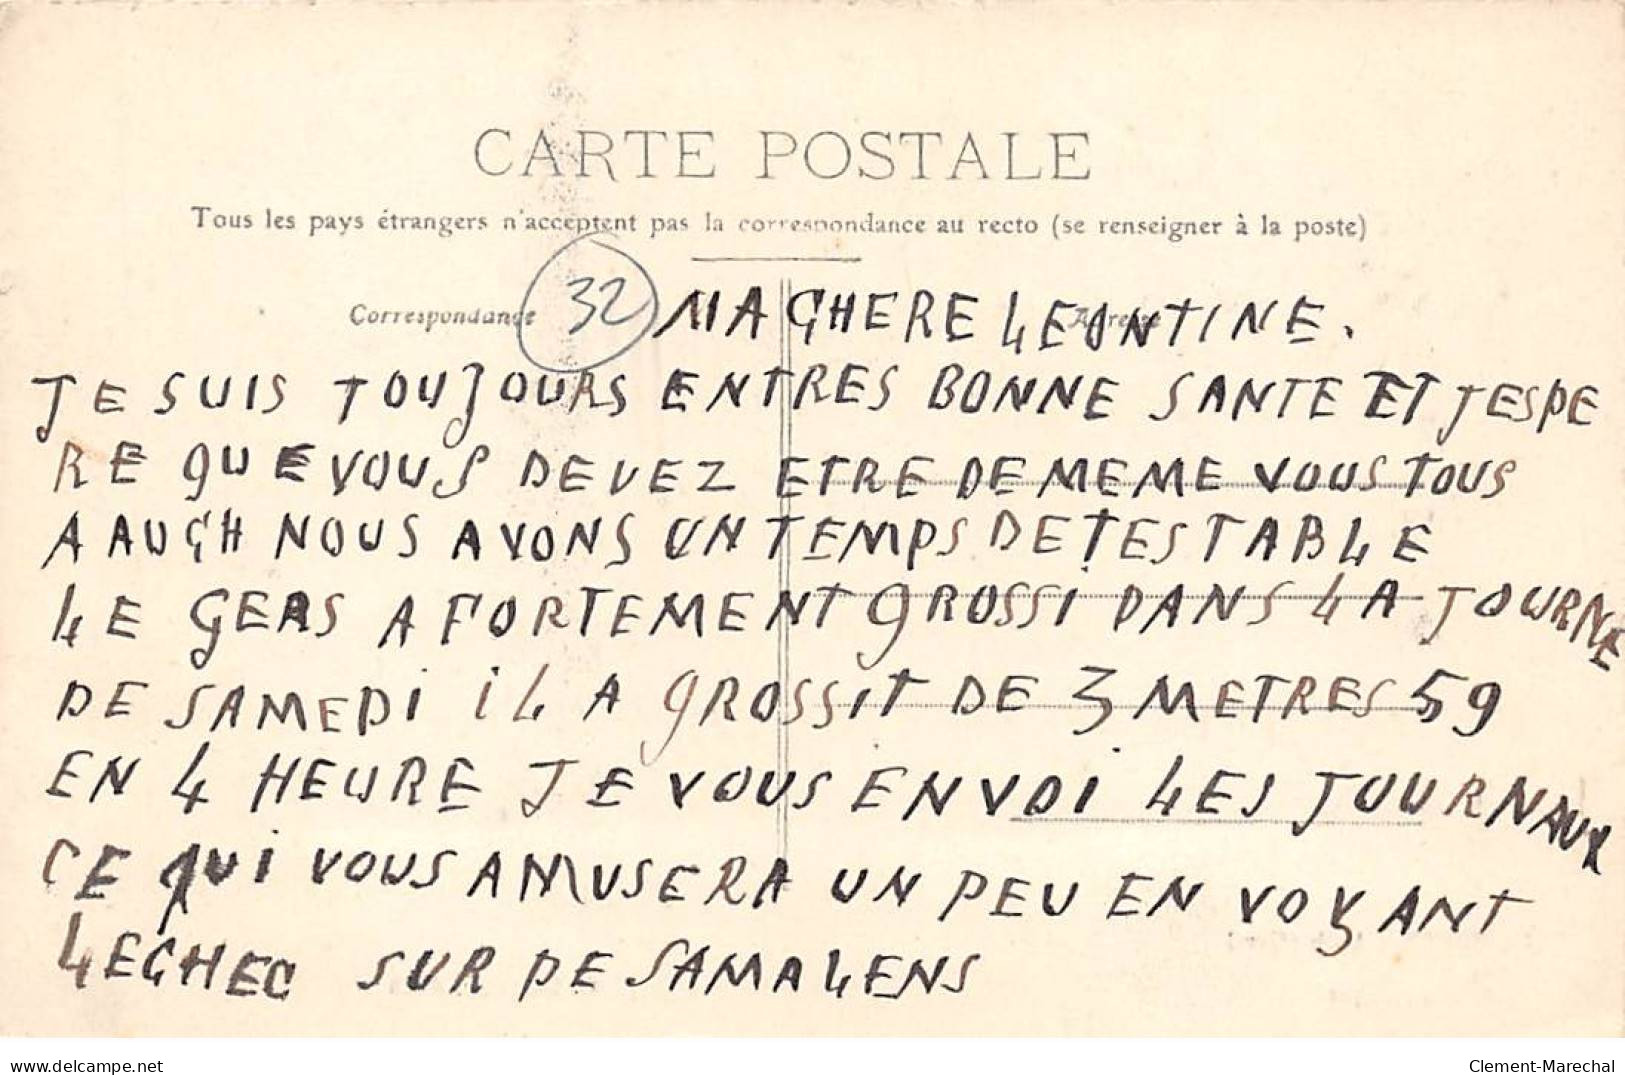 CARTE POSTALE
Tous les pays étrangers n'acceptent pas la correspondance au recto (se renseigner à la poste)
Correspondance 32 MA CHERE LEONTINE. Adresse
JE SUIS TOUJOURS ENTRES BONNE SANTE ET JESPE
RE QUE VOUS DEVEZ ETRE DE MEME VOUS TOUS
A AUCH NOUS AVONS UN TEMPS DETESTABLE
LE GERS A FORTEMENT GROSSI DANS LA JOURNE
DE SAMEDI IL A GROSSIT DE 3 METRES 59
EN 4 HEURE JE VOUS ENVOI LES JOURNAUX
CE QUI VOUS AMUSERA UN PEU EN VOYANT
LECHEC SUR DE SAMALENS
www.delcampe.net
Clement-Marechal